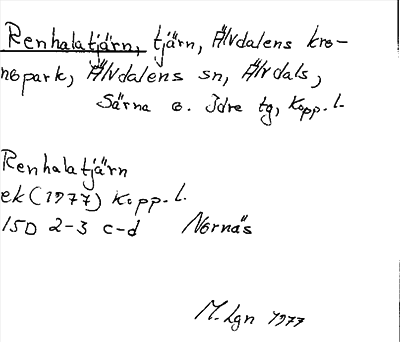 Renhalatjärn, tjärn, Älvdalens kro-
nopark, Älvdalens sn, Älvdals,
Särna o. Idre tg, Kopp. l.
Renhalatjärn
ek (1977) Kopp. l.
15D 2-3 c-d Nornäs
M. Lgn 1977